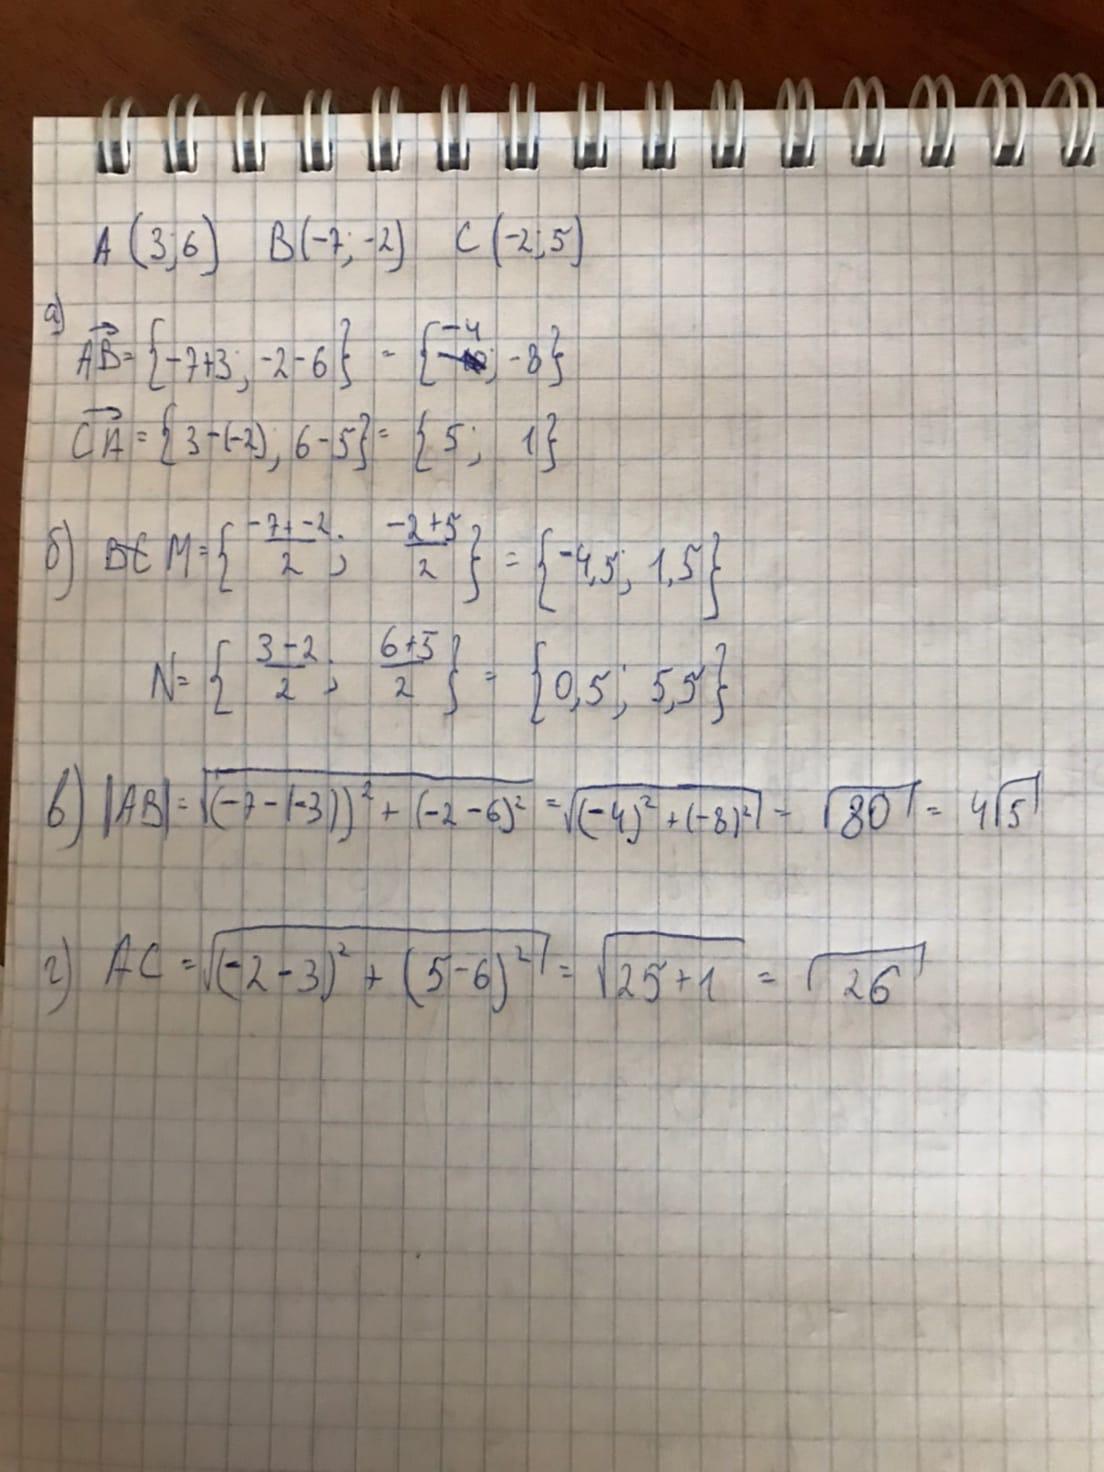 A (3;6) B(-7; -2) C (-2;5)
а)
AB = {-7+3; -2-6} = {-4; -8}
CA = {3-(-2); 6-5} = {5; 1}
б) M = {(-7+-2)/2; (-2+5)/2} = {-4,5; 1,5}
N = {(3-2)/2; (6+5)/2} = {0,5; 5,5}
в) |AB| = √((-7-(-3))² + (-2-6)²) = √((-4)² + (-8)²) = √80 = 4√5
г) AC = √((-2-3)² + (5-6)²) = √(25+1) = √26